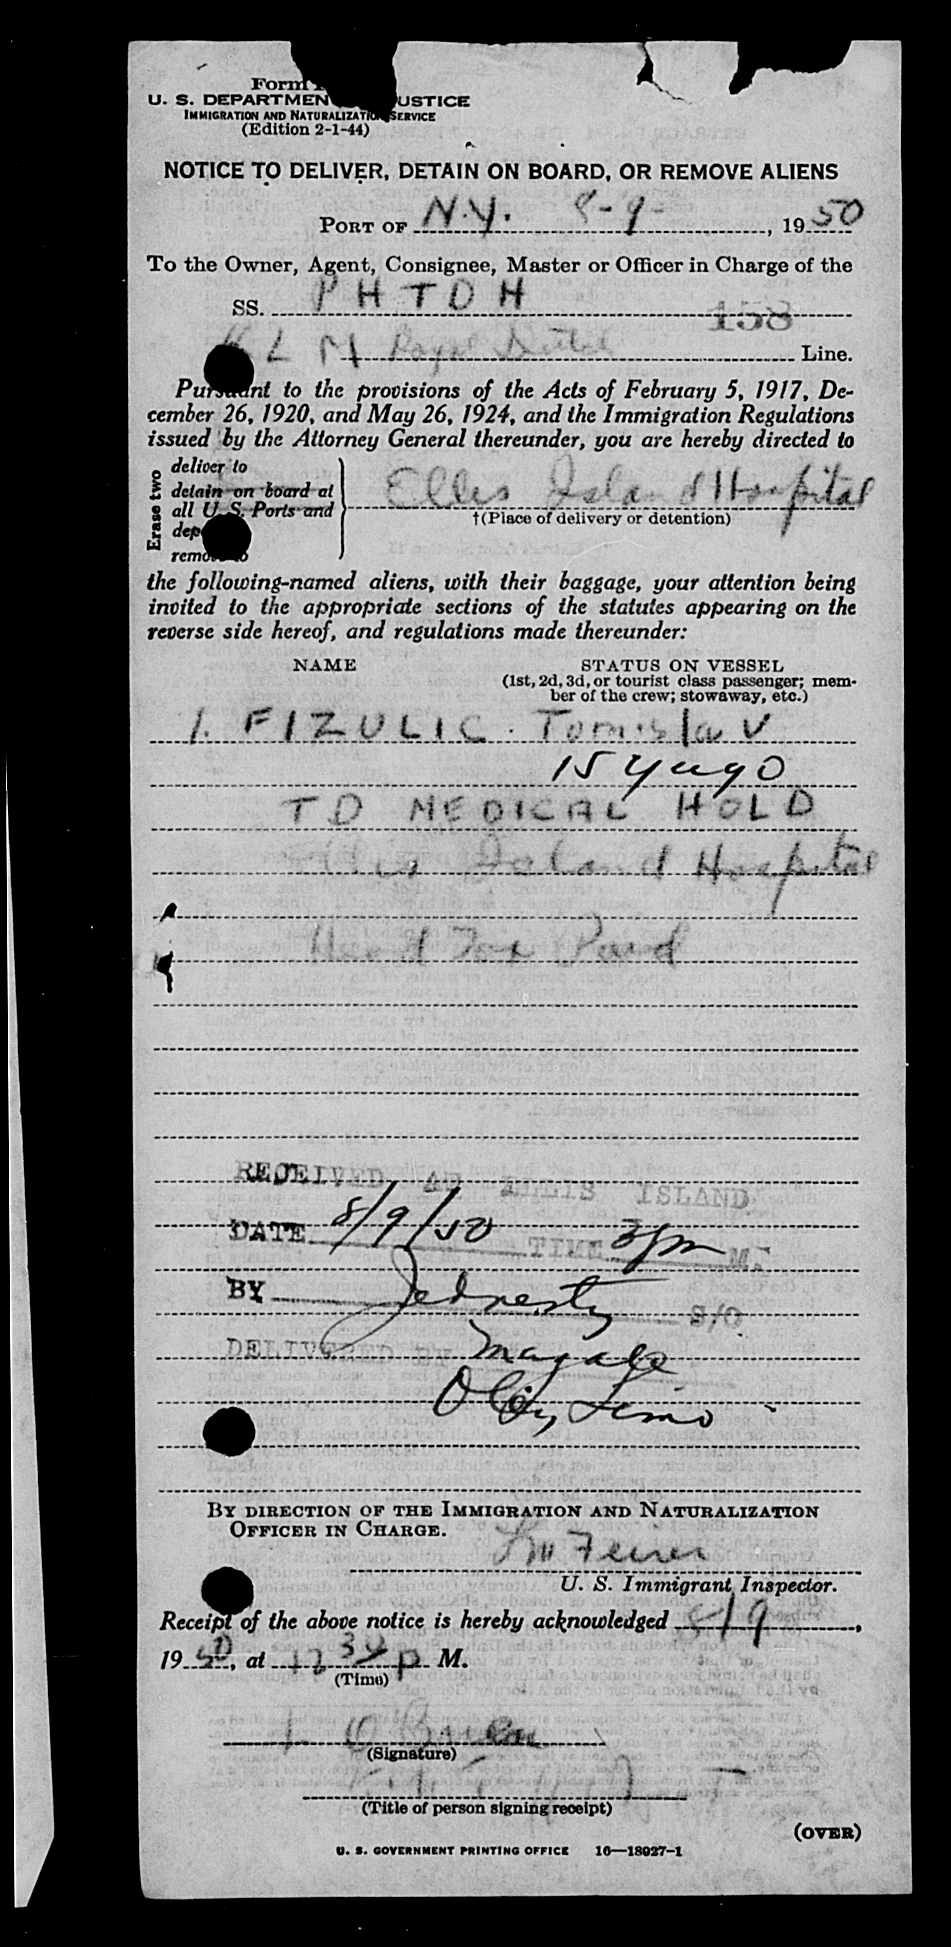 Form
U. S. DEPARTMEN USTICE
IMMIGRATION AND NATURALIZATION SERVICE
(Edition 2-1-44)
NOTICE TO DELIVER, DETAIN ON BOARD, OR REMOVE ALIENS
PORT OF N.Y. 8-9-, 1950
To the Owner, Agent, Consignee, Master or Officer in Charge of the
SS. PHTDH 158
KLM Royal Dutch Line.
Pursuant to the provisions of the Acts of February 5, 1917, De-
cember 26, 1920, and May 26, 1924, and the Immigration Regulations
issued by the Attorney General thereunder, you are hereby directed to
Erase two
deliver to
detain on board at
all U. S. Ports and
dep
remove to
Ellis Island Hospital
†(Place of delivery or detention)
the following-named aliens, with their baggage, your attention being
invited to the appropriate sections of the statutes appearing on the
reverse side hereof, and regulations made thereunder:
NAME STATUS ON VESSEL
(1st, 2d, 3d, or tourist class passenger; mem-
ber of the crew; stowaway, etc.)
1. FIZULIC. Tomislav
15 yugo
TD MEDICAL HOLD
Ellis Island Hospital
Head Tax Paid
RECEIVED AT ELLIS ISLAND
DATE 8/9/50 TIME 3pm M.
BY S/O
DELIVERED BY
BY DIRECTION OF THE IMMIGRATION AND NATURALIZATION
OFFICER IN CHARGE.
U. S. Immigrant Inspector.
Receipt of the above notice is hereby acknowledged 8/9,
1950, at 12 34 p M.
(Time)
(Signature)
(Title of person signing receipt)
(OVER)
U. S. GOVERNMENT PRINTING OFFICE 16—18027-1